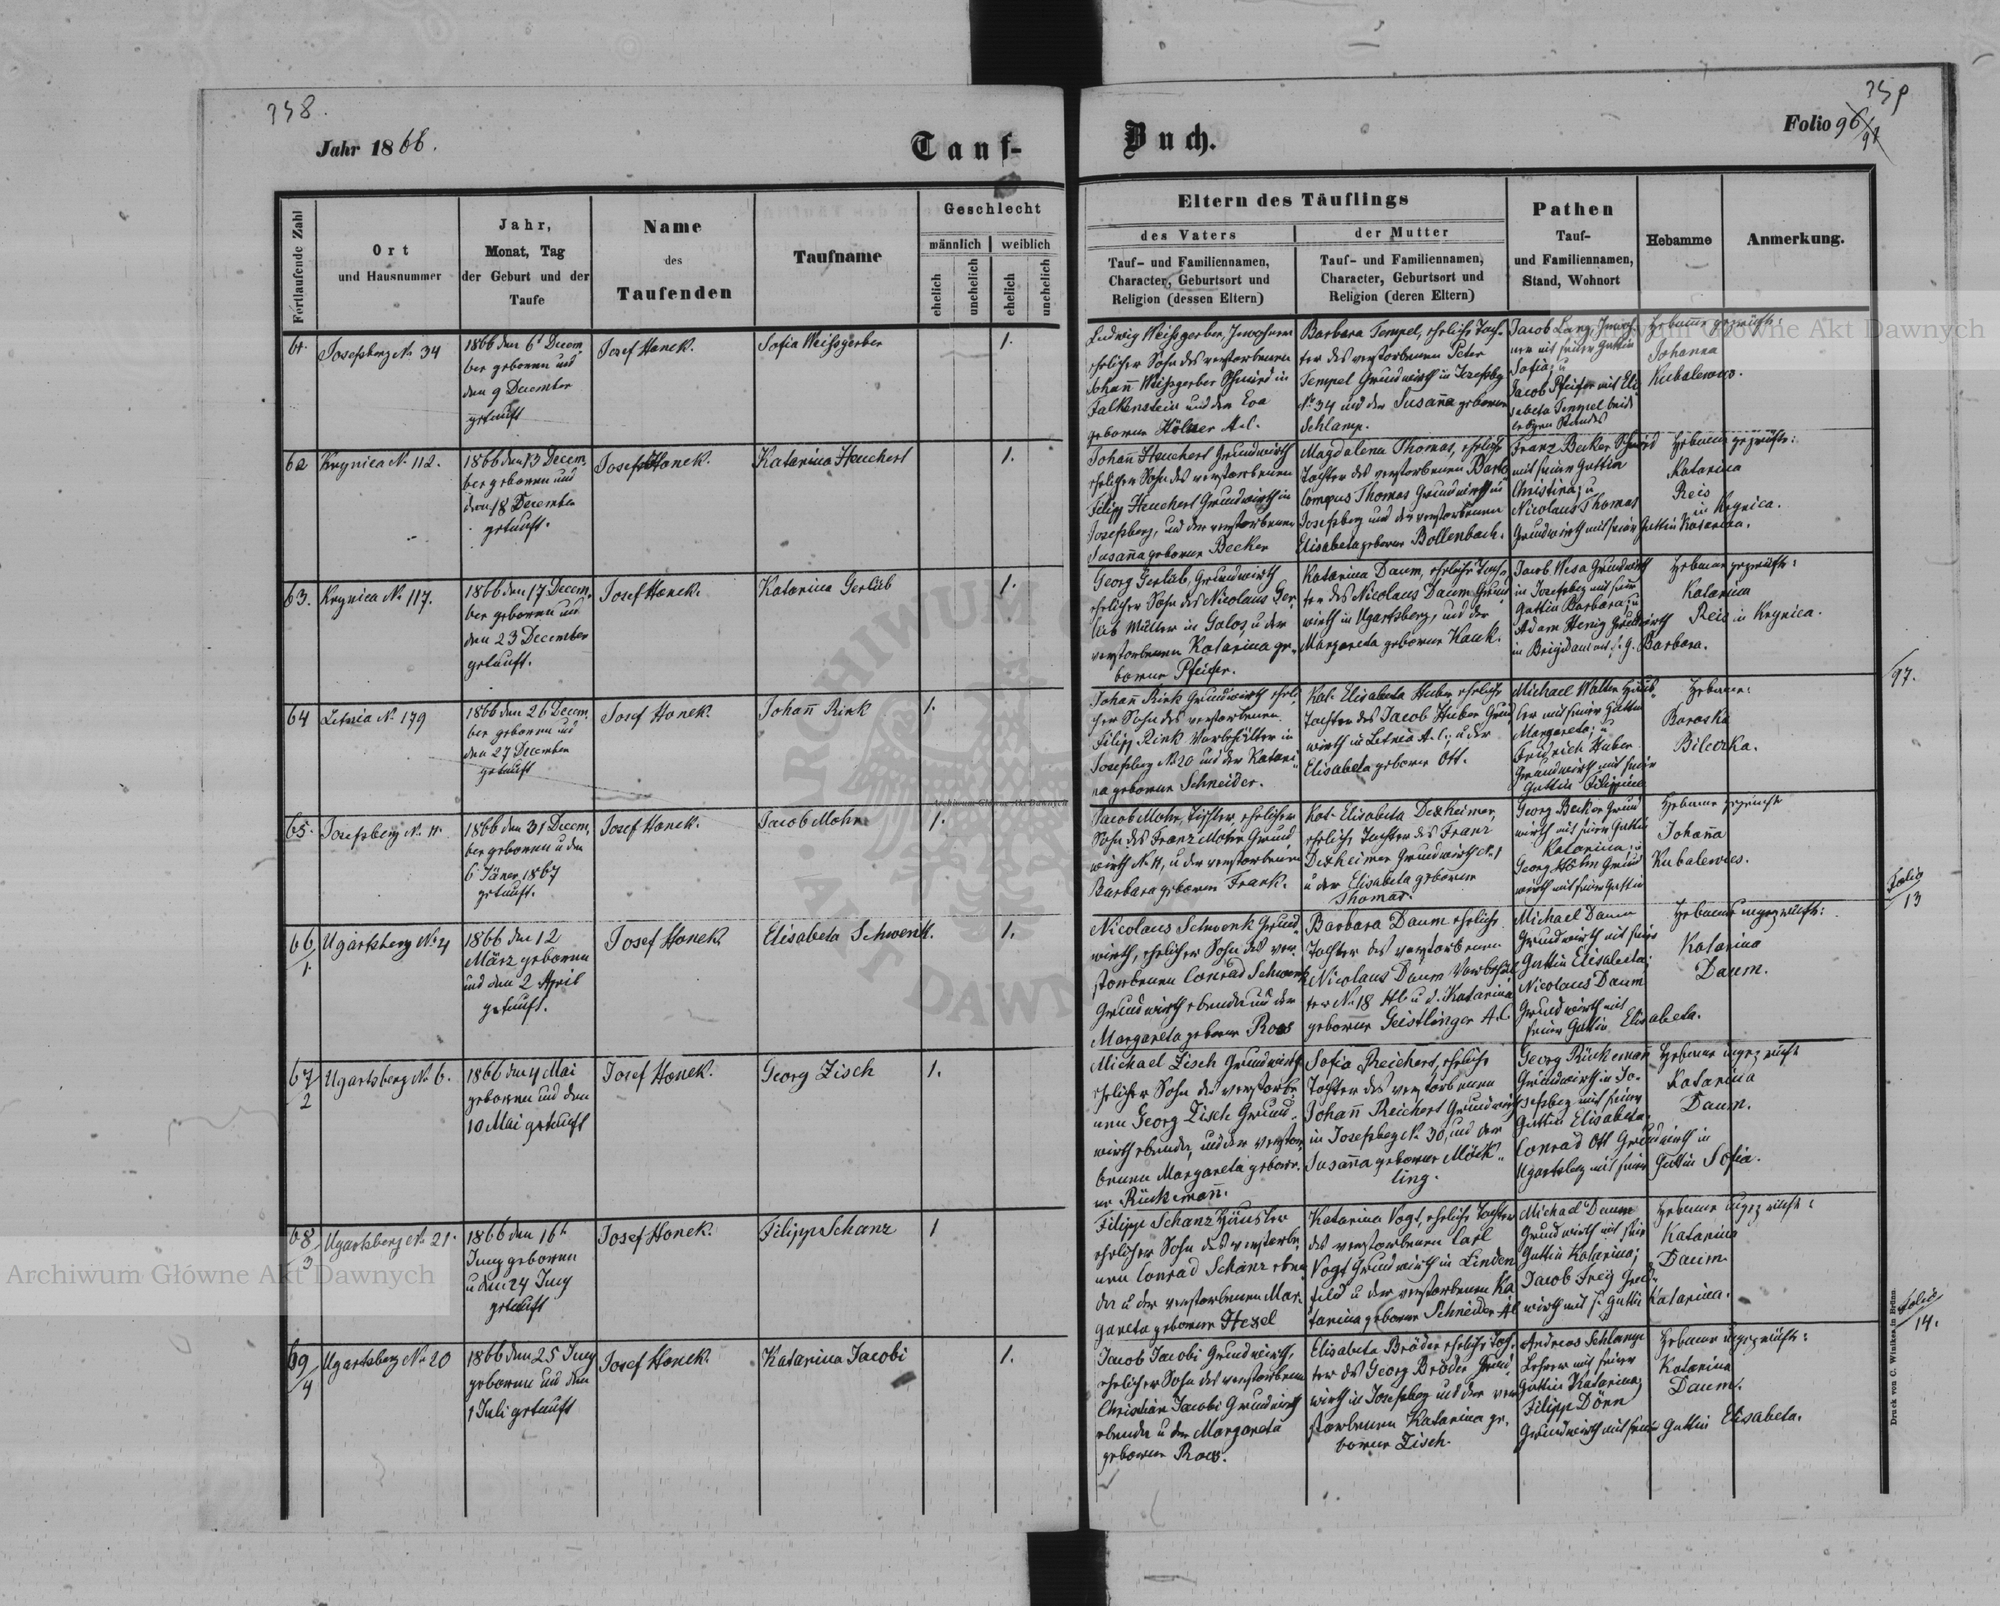 358.
359
Jahr 1866.
Tauf-
Buch.
Folio 96/97
Fortlaufende Zahl
Ort
und Hausnummer
Jahr,
Monat, Tag
der Geburt und der
Taufe
Name
des
Taufenden
Taufname
Geschlecht
männlich
weiblich
ehelich
unehelich
ehelich
unehelich
Eltern des Täuflings
des Vaters
Tauf- und Familiennamen,
Character, Geburtsort und
Religion (dessen Eltern)
der Mutter
Tauf- und Familiennamen,
Character, Geburtsort und
Religion (deren Eltern)
Pathen
Tauf-
und Familiennamen,
Stand, Wohnort
Hebamme
Anmerkung.
61.
Josefsberg No 34
1866 den 6t Decem-
ber geboren und
den 9 December
getauft
Josef Honek.
Sofia Weißgerber
1.
Ludwig Weißgerber, Inwohner
ehelicher Sohn des verstorbenen
Johann Weißgerber Schmied in
Falkenstein und der Eva
geborene Hölzer A.C.
Barbara Tempel, eheliche Toch-
ter des verstorbenen Peter
Tempel Grundwirth in Josefsbg
No 34 und der Susanna geborene
Schlamp.
Jacob Lang, Inwoh-
ner mit seiner Gattin
Sofia; u
Jacob Pfeifer mit Eli-
sabeta Tempel beide
ledigen Standes
Hebamme geprüfte:
Johanna
Kubalewicz.
62
Krynica No 112.
1866 den 13 Decem-
ber geboren und
den 18 December
getauft.
Josef Honek.
Katarina Heuchert
1.
Johann Heuchert Grundwirth
ehelicher Sohn des verstorbenen
Filipp Heuchert Grundwirth in
Josefsberg, und der verstorbenen
Susanna geborene Becker
Magdalena Thomas, eheliche
Tochter des verstorbenen Barto
lomeus Thomas Grundwirth in
Josefsberg und der verstorbenen
Elisabeta geborene Bollenbach.
Franz Becker Schmied
mit seiner Gattin
Christina; u
Nicolaus Thomas
Grundwirth mit seiner Gattin Katarina.
Hebamme geprüfte:
Katarina
Reis
in Krynica.
63.
Krynica No 117.
1866 den 17 Decem-
ber geboren und
den 23 December
getauft.
Josef Honek.
Katarina Gerlib
1.
Georg Gerlib, Grundwirth
ehelicher Sohn des Nicolaus Ger-
lib Müller in Solos, u der
verstorbenen Katarina ge-
borene Pfeifer.
Katarina Daum, eheliche Toch-
ter des Nicolaus Daum Grund
wirth in Ugartsberg, und der
Margareta geborene Kauk.
Jacob Wesa Grundwirth
in Josefsberg mit seiner
Gattin Barbara; u
Adam Henig Grundwirth
in Brigidau mit s. G. Barbara.
Hebamme geprüfte:
Katarina
Reis in Krynica.
64
Letnia No 179
1866 den 26 Decem-
ber geboren und
den 27 December
getauft
Josef Honek.
Johann Rink
1.
Johann Rink Grundwirth eheli-
cher Sohn des verstorbenen
Filipp Rink Vorbehälter in
Josefsberg No 20 und der Katari-
na geborene Schneider.
Kat. Elisabeta Huber eheliche
Tochter des Jacob Huber Grund
wirth in Letnia A.C., u der
Elisabeta geborene Ott.
Michael Walter Häus-
ler mit seiner Gattin
Margareta; u
Fridrich Huber
Grundwirth mit seiner
Gattin Filippina
Hebamme:
Baraska
Bileczka.
97.
65.
Josefsberg No 11.
1866 den 31 Decem-
ber geboren u den
6 Jäner 1867
getauft.
Josef Honek.
Jacob Mohr
1.
Jacob Mohr, Tischler, ehelicher
Sohn des Franz Mohr Grund
wirth No 11, u der verstorbenen
Barbara geborene Frank.
Kat. Elisabeta Dexheimer,
eheliche Tochter des Franz
Dexheimer Grundwirth No 1
u der Elisabeta geborene
Thomas.
Georg Becker Grund
wirth mit seiner Gattin
Katarina; u
Georg Hühn Grund
wirth mit seiner Gattin
Hebamme geprüfte
Johanna
Kubalewics.
Folio
13
66/1.
Ugartsberg No 4
1866 den 12
März geboren
und den 2 April
getauft.
Josef Honek.
Elisabeta Schwenk.
1.
Nicolaus Schwenk Grund-
wirth, ehelicher Sohn des ver-
storbenen Conrad Schwenk
Grundwirth ebenda und der
Margareta geborene Roos
Barbara Daum eheliche
Tochter des verstorbenen
Nicolaus Daum Vorbehäl-
ter No 18 u d. Katarina
geborene Geistlinger A.C
Michael Daum
Grundwirth mit seiner
Gattin Elisabeta;
Nicolaus Daum
Grundwirth mit
seiner Gattin Elisabeta.
Hebamme ungeprüfte:
Katarina
Daum.
67/2
Ugartsberg No 6.
1866 den 4 Mai
geboren und den
10 Mai getauft
Josef Honek.
Georg Zisch
1.
Michael Zisch Grundwirth
ehelicher Sohn des verstorbe-
nen Georg Zisch Grund-
wirth ebenda, und der verstor-
benen Margareta gebore-
ne Rückemann.
Sofia Reichert, eheliche
Tochter des verstorbenen
Johann Reichert Grundwirth
in Josefsberg No 30, und der
Susanna geborene Möck-
ling.
Georg Rückemann
Grundwirth in Jo-
sefsberg mit seiner
Gattin Elisabeta.
Conrad Ott Grundwirth in
Ugartsberg mit seiner Gattin Sofia.
Hebamme ungeprüft
Katarina
Daum.
68/3
Ugartsberg No 21.
1866 den 16t
Juny geboren
u den 24 Juny
getauft
Josef Honek.
Filipp Schanz
1
Filipp Schanz Häusler
ehelicher Sohn des verstorbe-
nen Conrad Schanz eben
da u der verstorbenen Mar-
gareta geborene Hexel
Katarina Vogt, eheliche Tochter
des verstorbenen Carl
Vogt Grundwirth in Linden
feld u der verstorbenen Ka
tarina geborene Schneider AC
Michael Daum
Grundwirth mit seiner
Gattin Katarina;
Jacob Freis Grund-
wirth mit s. Gattin Katarina.
Hebamme ungeprüfte:
Katarina
Daum
Folio
14.
69/4
Ugartsberg No 20
1866 den 25 Juny
geboren und den
1 Juli getauft
Josef Honek.
Katarina Jacobi
1.
Jacob Jacobi Grundwirth,
ehelicher Sohn des verstorbenen
Christian Jacobi Grundwirth
ebenda u der Margareta
geborene Roos.
Elisabeta Bröder eheliche Toch-
ter des Georg Bröder Grund-
wirth in Josefsberg und der ver
storbenen Katarina ge-
borene Zisch.
Andreas Schlange
Lehrer mit seiner
Gattin Katarina;
Filipp Dörr
Grundwirth mit seiner Gattin Elisabeta.
Hebamme ungeprüfte:
Katarina
Daum.
Druck von C. Winiker in Brünn.
Archiwum Główne Akt Dawnych